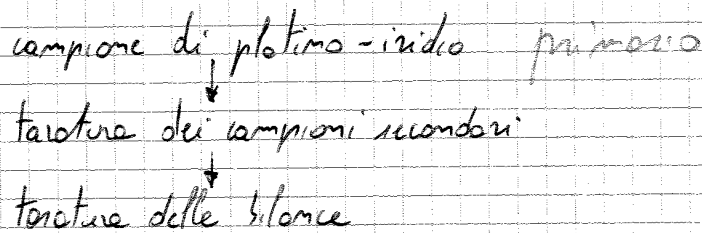 campione di platino-iridio primario
↓
taratura dei campioni secondari
↓
taratura delle bilance